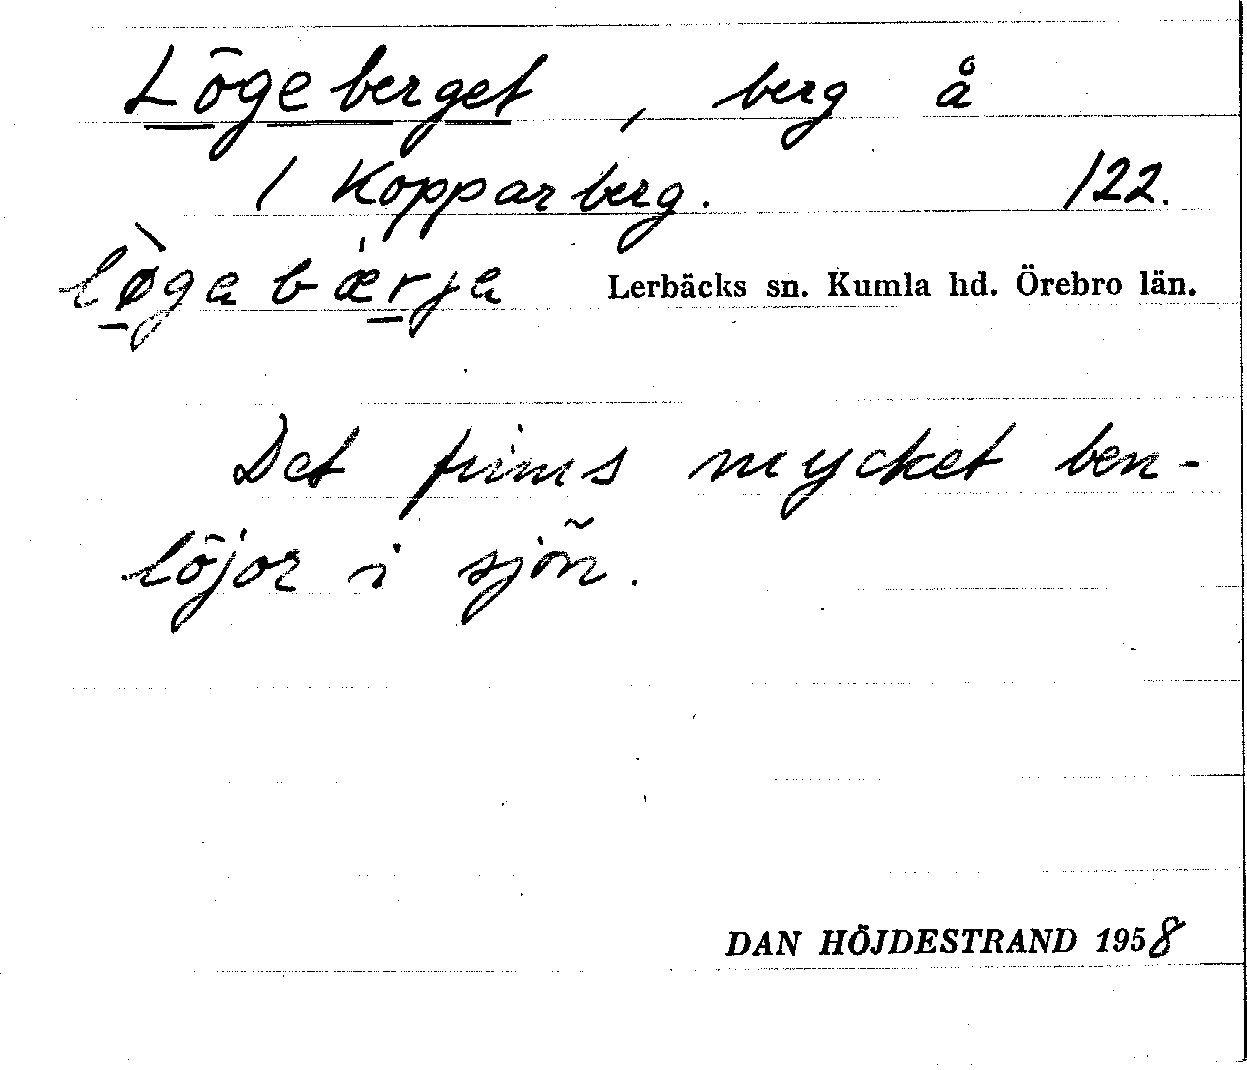 Lögeberget, berg å
1 Kopparberg. 122.
lø̀gabæ̀rja Lerbäcks sn. Kumla hd. Örebro län.
Det finns mycket ben-
löjor i sjön.
DAN HÖJDESTRAND 1958